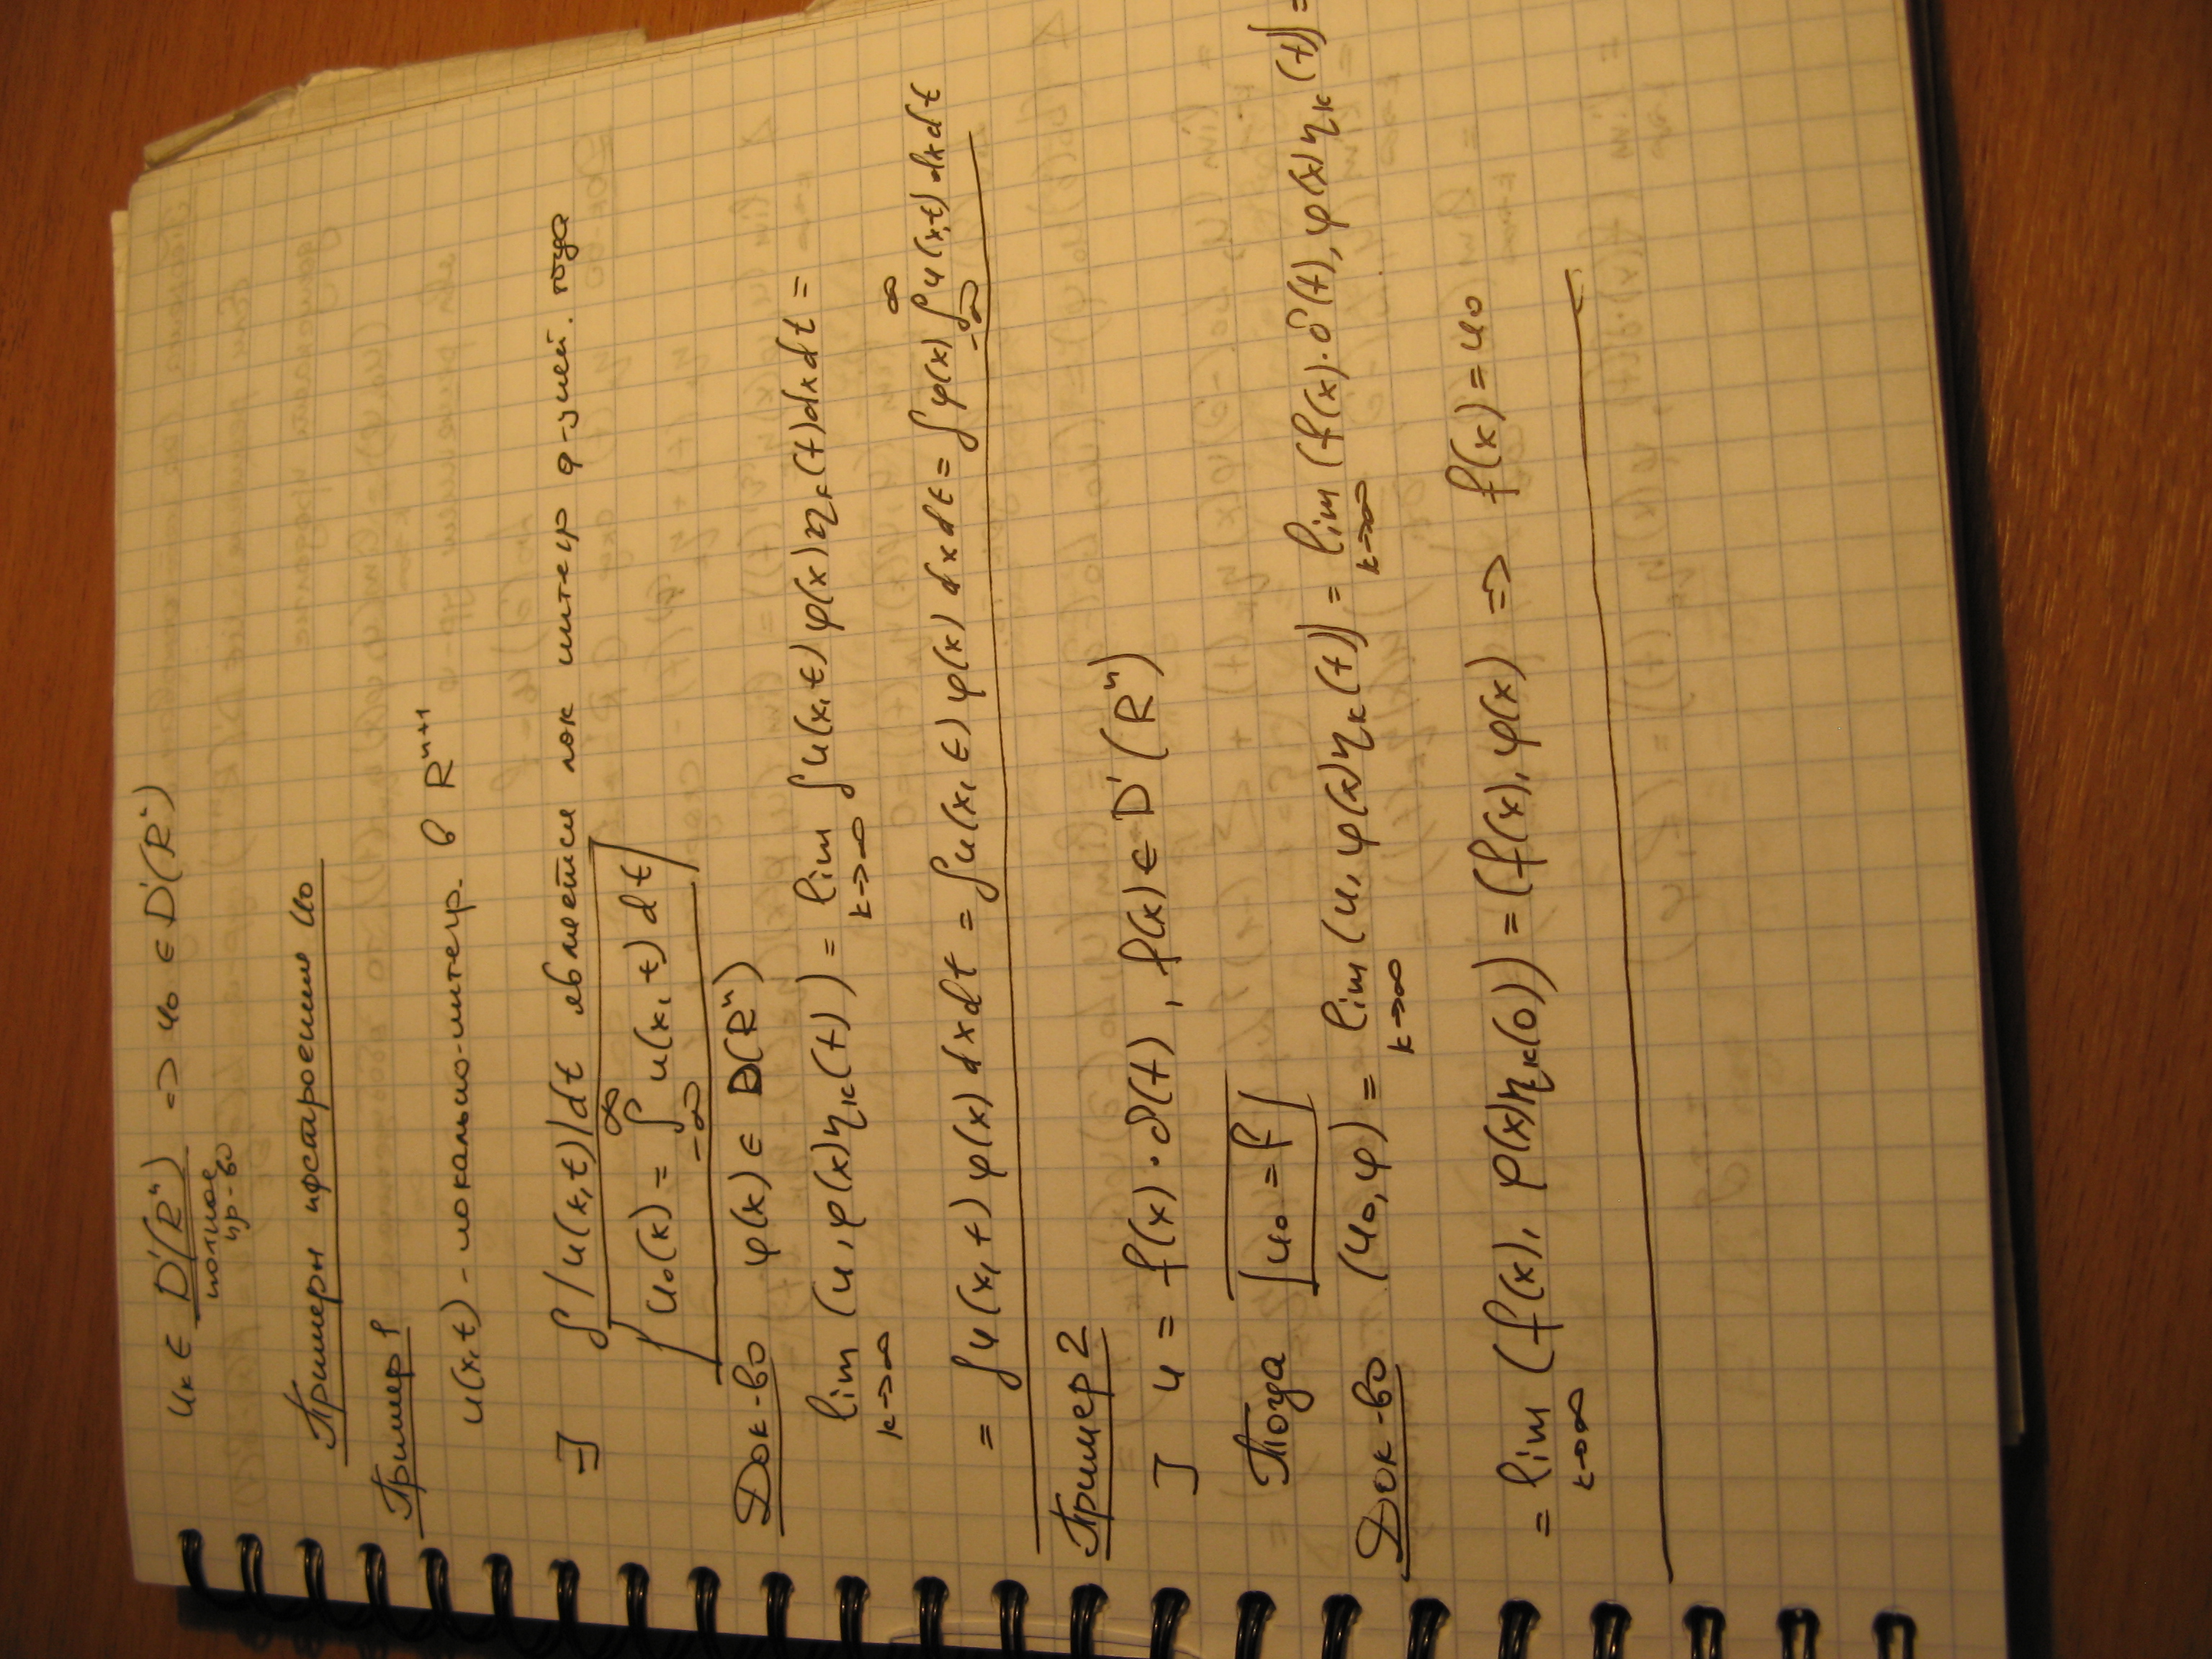 uₖ ∈ D'(Rⁿ) => u₀ ∈ D'(Rⁿ)
полное
пр-во
Примеры построения u₀
Пример 1
u(x,t) - локально-интегр. в Rⁿ⁺¹
∃ ∫|u(x,t)|dt является лок интегр ф-цией. тогда
u₀(x) = ∫_{-∞}^{∞} u(x,t)dt
Док-во φ(x) ∈ D(Rⁿ)
lim_{k→∞} (u, φ(x)ηₖ(t)) = lim_{k→∞} ∫u(x,t)φ(x)ηₖ(t)dxdt =
= ∫u(x,t)φ(x)dxdt = ∫u(x,t)φ(x)dxdt = ∫φ(x) ∫_{-∞}^{∞} u(x,t)dxdt
Пример 2
] u = f(x)·δ(t), f(x) ∈ D'(Rⁿ)
Тогда u₀ = f
Док-во (u₀,φ) = lim_{k→∞} (u, φ(x)ηₖ(t)) = lim_{k→∞} (f(x)·δ(t), φ(x)ηₖ(t)) =
= lim_{k→∞} (f(x), φ(x)ηₖ(0)) = (f(x), φ(x)) => f(x) = u₀